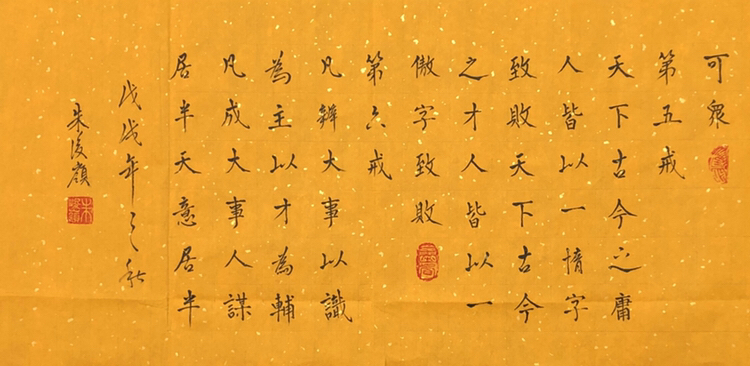 可眾
第五戒
天下古今之庸
人皆以一惰字
致敗天下古今
之才人皆以一
傲字致敗
第六戒
凡辦大事以識
為主以才為輔
凡成大事人謀
居半天意居半
戊戌年之秋
朱俊嶺